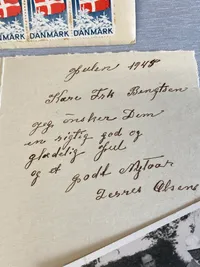 DANMARK DANMARK DANMARK
Julen 1948
Kære Frk Bengtsen
jeg önsker Dem
en rigtig god og
glædelig Jul
og et godt Nytaar
Deres Olsens